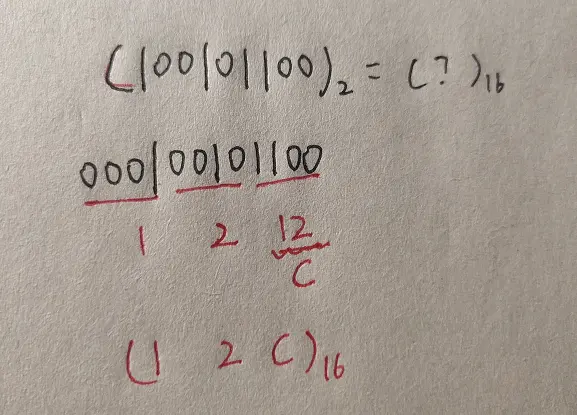 (100101100)₂ = (?)₁₆
000100101100
1 2 12
C
(1 2 C)₁₆